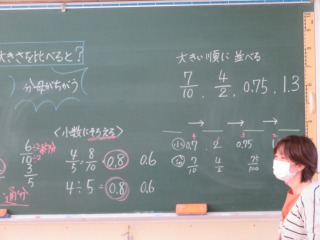 大きさを比べると?
分母がちがう
6/10
3/5
通分
<小数にそろえる>
4/5 = 8/10 0.8 0.6
4÷5 = 0.8 0.6
大きい順に並べる
7/10, 4/2, 0.75, 1.3
4 3 2
0.7 2 0.75
7/10 4/2 75/100